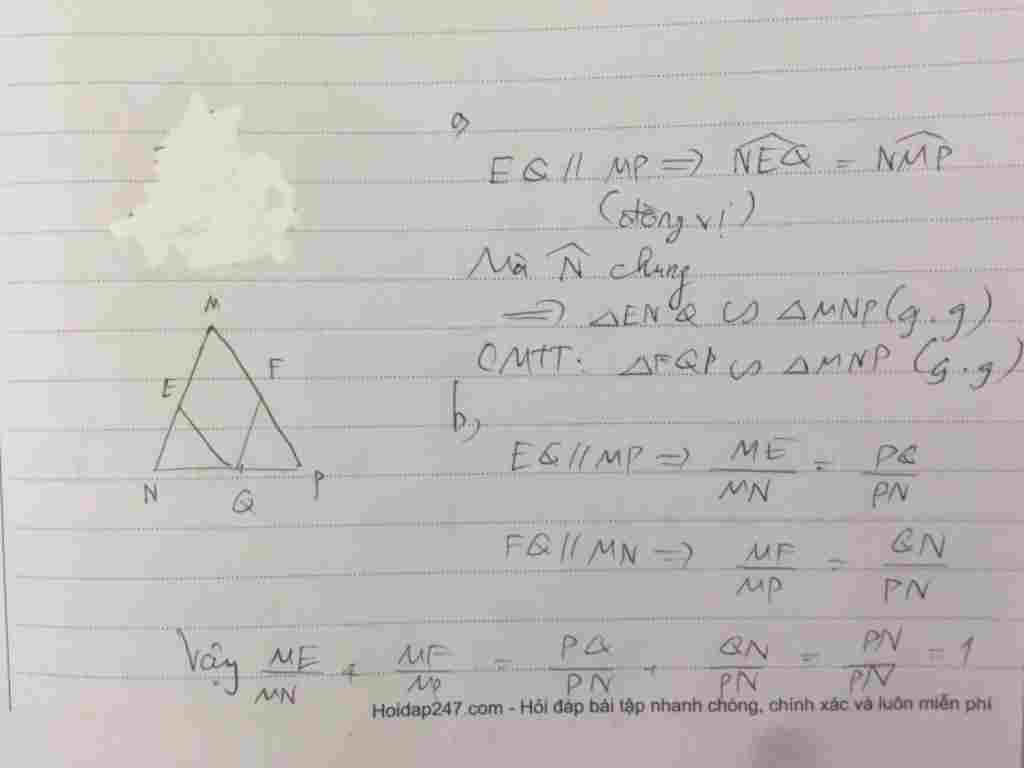 a,
EQ // MP => NEQ = NMP
(đồng vị)
Mà N chung
=> ΔENQ ∽ ΔMNP (g.g)
CMTT: ΔFQP ∽ ΔMNP (g.g)
M
E
F
N
Q
P
b,
EQ // MP => ME/MN = PQ/PN
FQ // MN => MF/MP = QN/PN
Vậy ME/MN + MF/MP = PQ/PN + QN/PN = PN/PN = 1
Hoidap247.com - Hỏi đáp bài tập nhanh chóng, chính xác và luôn miễn phí